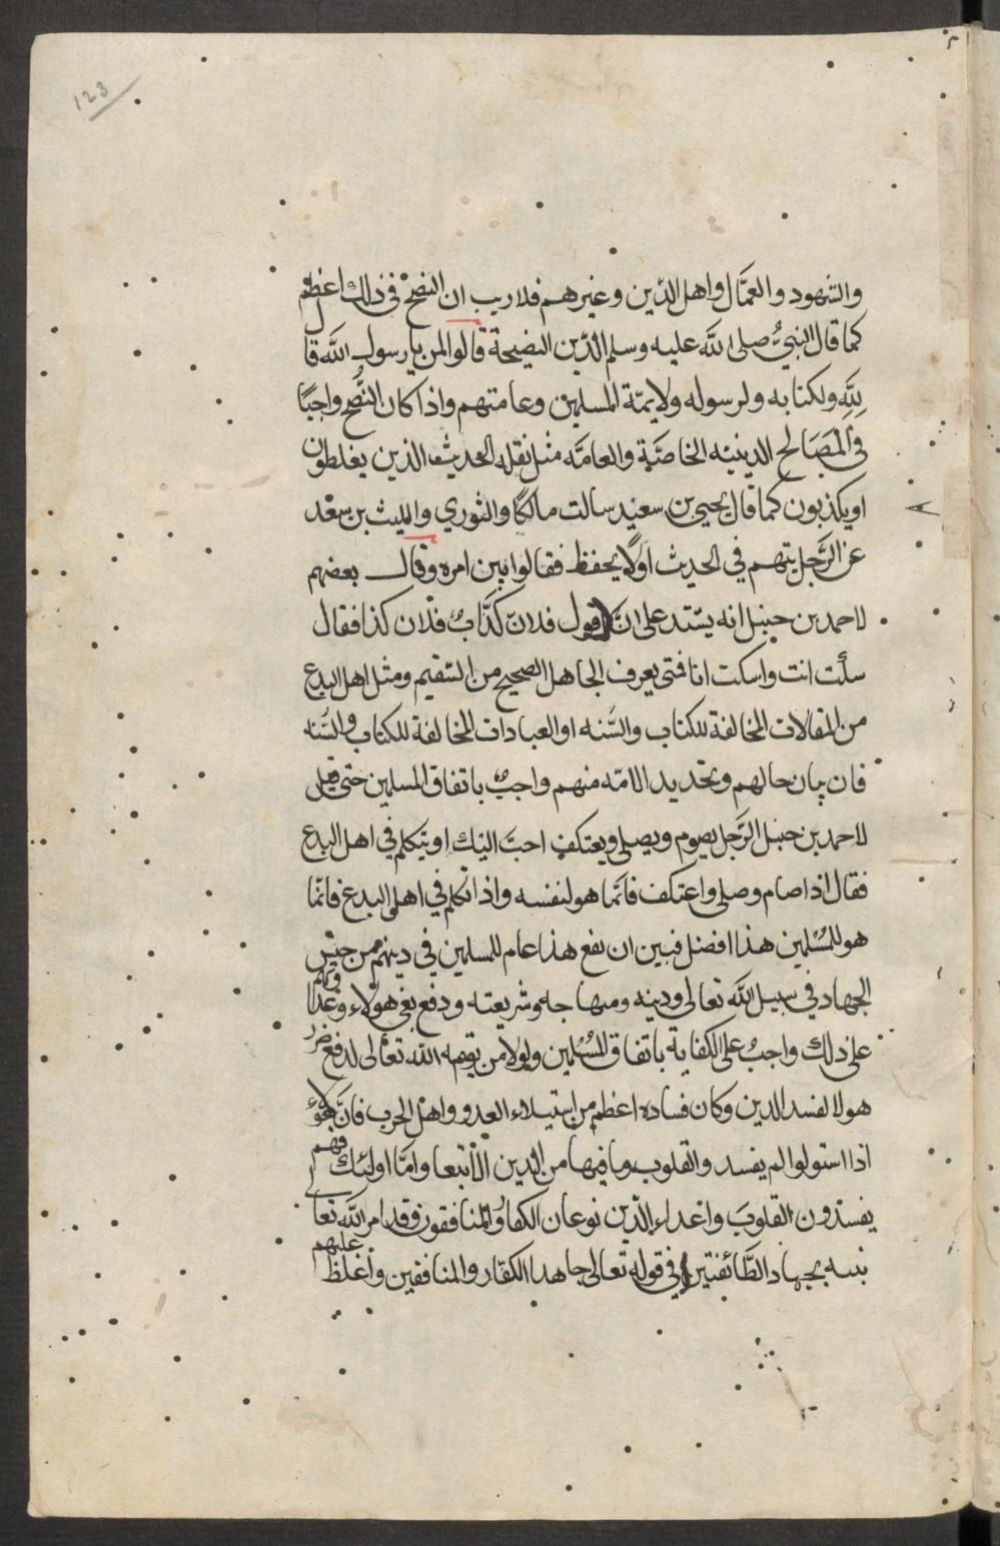 123
والشهود والعمّال واهل الدّين وغيرهم فلا ريب ان النصح في ذلك اعظم
كما قال النبيُّ صلى الله عليه وسلم الدّين النصيحة قالوا لمن يا رسول الله قال
لِلَّهِ ولكتابه ولرسوله ولايمّة المسلمين وعامتهم واذا كان النُّصح واجبًا
في المَصَالح الدينيه الخاصّة والعامّه مثل نقله الحديث الذين يغلطون
او يكذبون كما قال يحيى بن سعيد سالت مالكًا والثوري والليث بن سعْد
عن الرَّجل يتهم في الحديث اولًا يحفظ فقالوا بين امره وقال بعضهم
لاحمد بن حنبل انه يشتد على انّ اقول فلان كذّابٌ فلان كذا فقال
سكَت انت واسكت انا فمتى يعرف الجاهل الصحيح من السّقيم ومثل اهل البدع
من المقالات المخالفة للكتاب والسّنه او العبادات المخالفة للكتاب والسّنه
فان بيان حالهم وتحديد الامّه منهم واجبٌ باتفاق المسلمين حتى قيل
لاحمد بن حنبل الرَّجل يصوم ويصلي ويعتكف احبّ اليك او يتكلم في اهل البدع
فقال اذا صام وصلى واعتكف فانّما هو لنفسه واذا تكلم في اهل البدع فانّما
هو للمُسْلمين هذا افضل فبين ان نفع هذا عام للمسلمين في دينهم من جنس
الجهاد في سبيل الله تعالى ودينه ومنهاجه وشريعته ودفع بغي هولاء وعدوانهم
على ذلك واجبٌ على الكفاية باتفاق المُسْلمين ولولا من يقيمه الله تعالى لدفع ضرر
هولا لفسد الدين وكان فساده اعظم من استيلاء العدو واهل الحرب فانّ هؤلاء
اذا استولوا لم يفسد والقلوب وما فيها من الدين الّا تبعا وامّا اولئك فهم
يفسدون القلوبَ واعداء الدّين نوعان الكفار والمنافقون وقد امر الله تعا
نبيه بجهاد الطَّائفتين في قوله تعالى جاهد الكفّار والمنافقين واغلظ عليهم